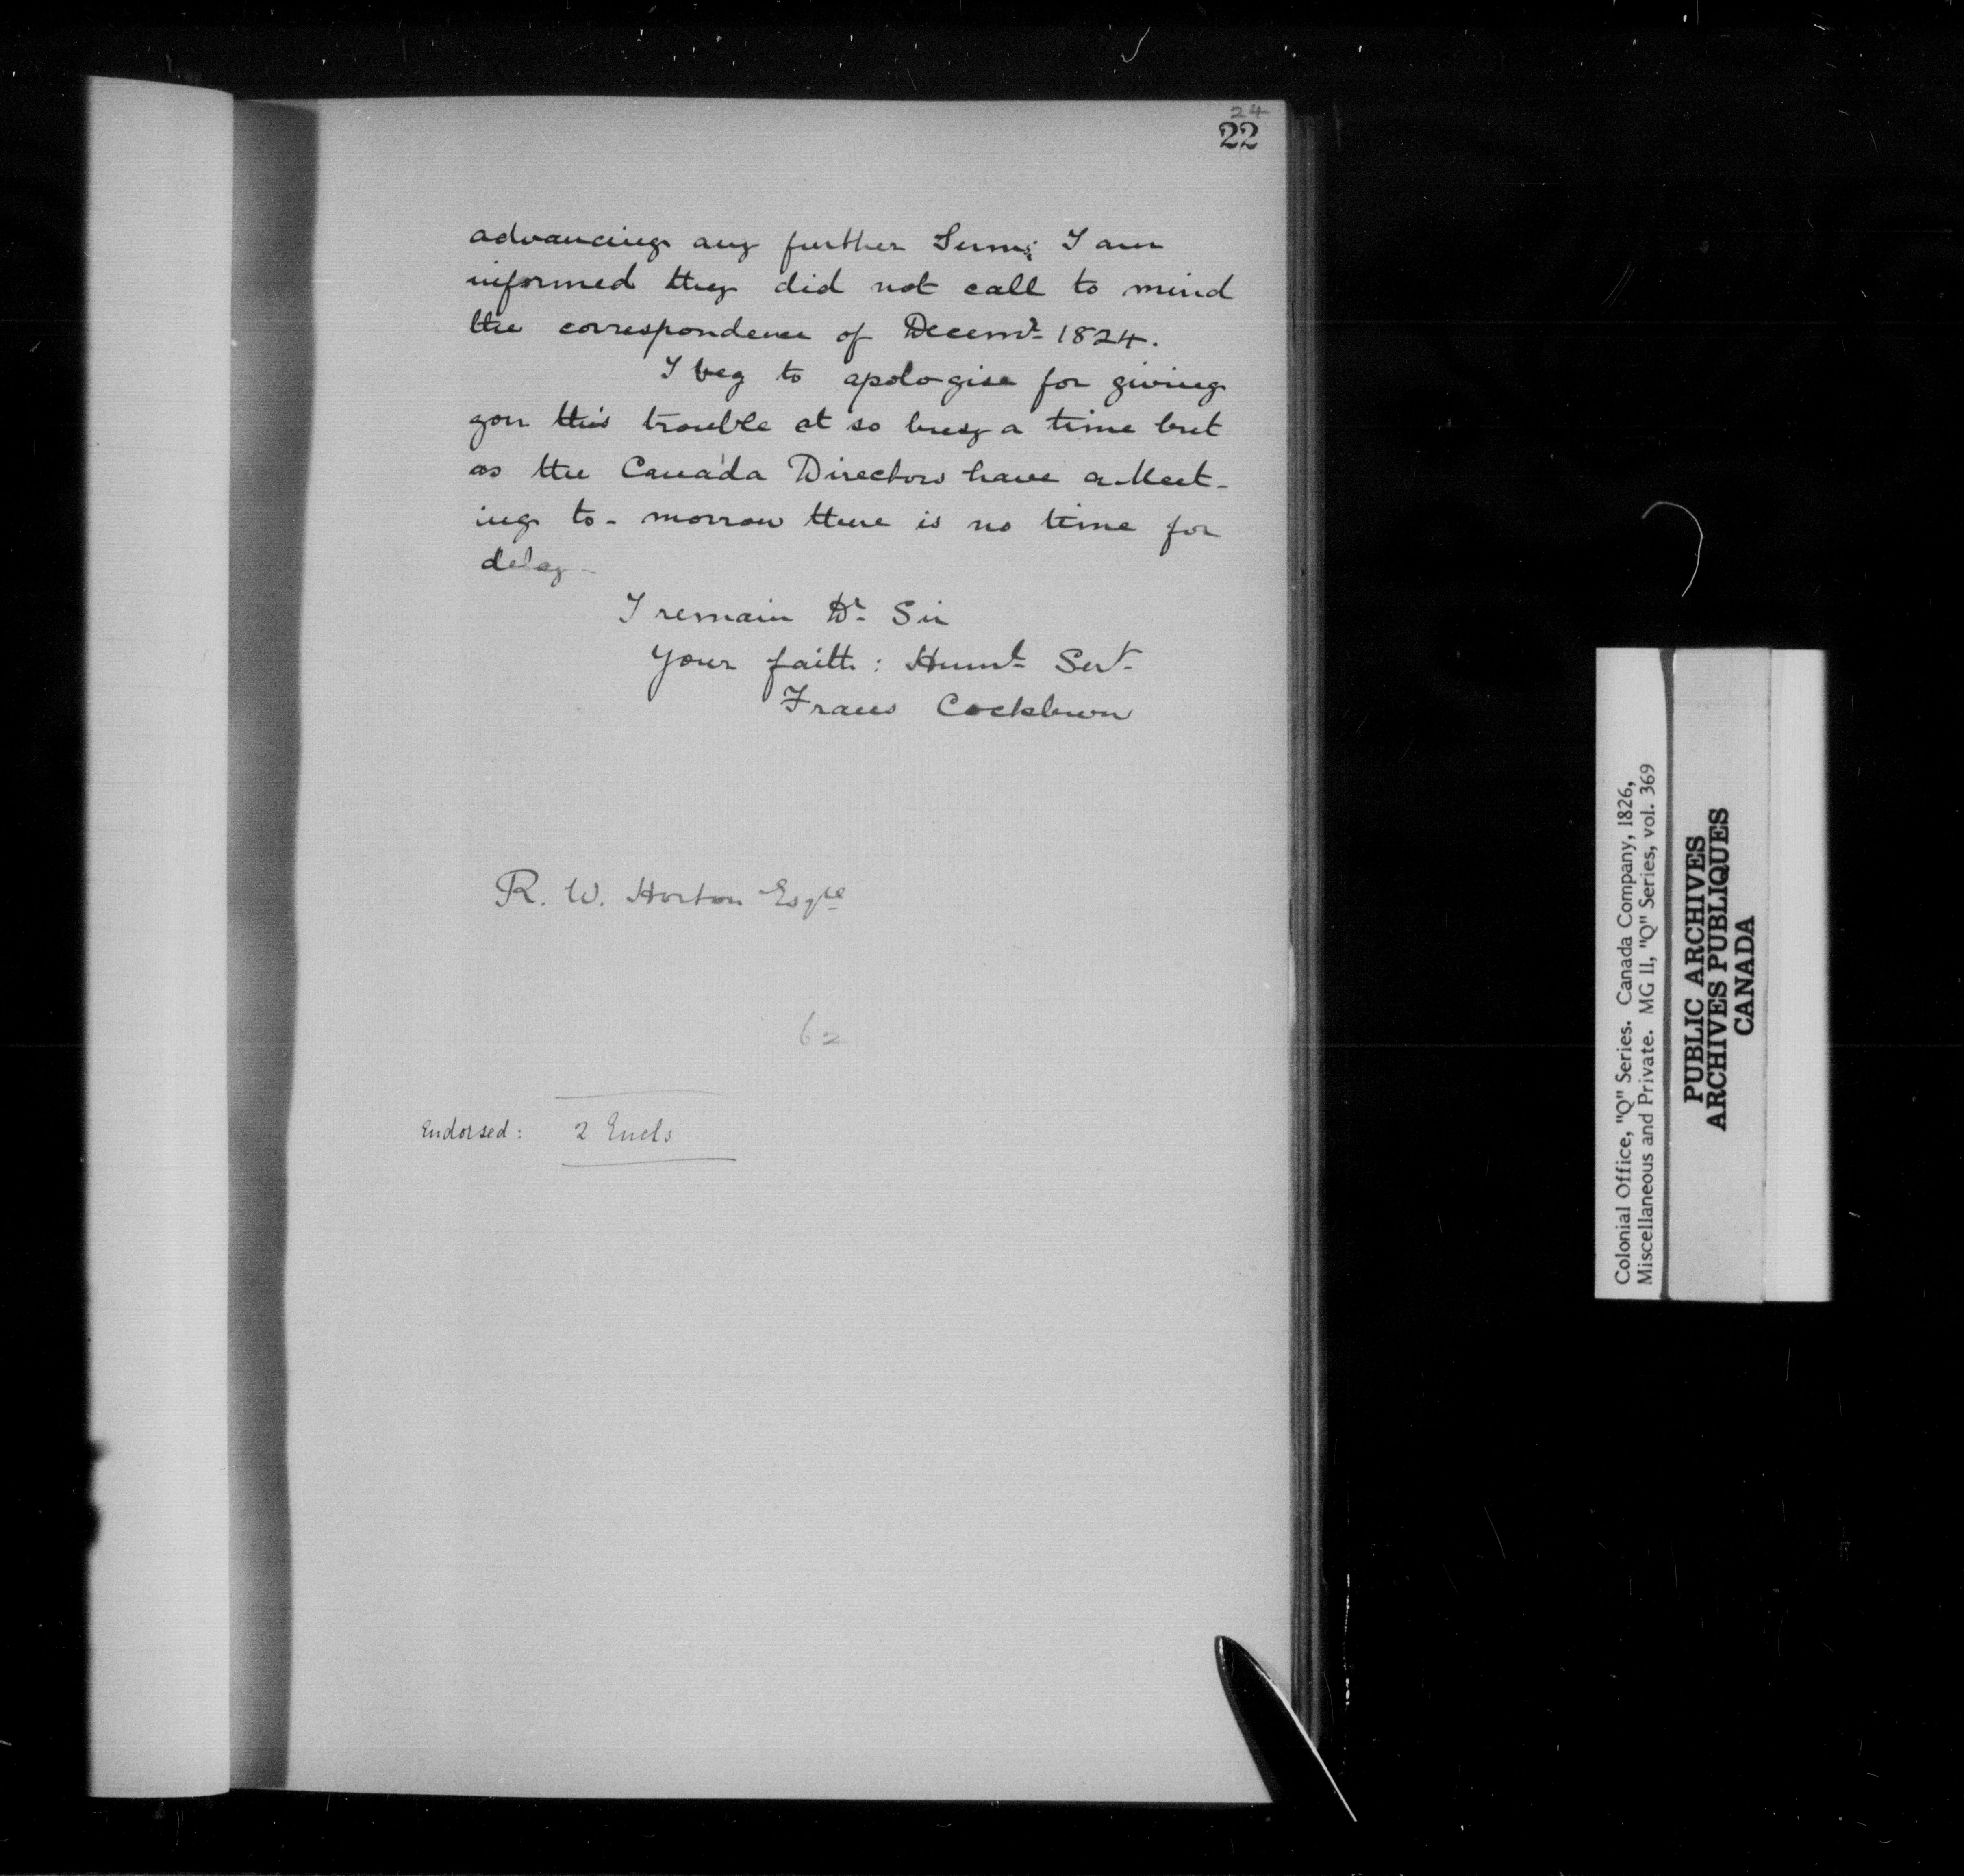 24
22
advancing any further Sum; I am
informed they did not call to mind
the correspondence of Decemr 1824.
I beg to apologise for giving
you this trouble at so busy a time but
as the Canada Directors have a Meet-
ing to-morrow there is no time for
delay -
I remain Dr Sir
Your faith: Humle Servt
Frans Cockburn
R. W. Horton Esqre
62
Endorsed: 2 Encls
Colonial Office, "Q" Series. Canada Company, 1826,
Miscellaneous and Private. MG 11, "Q" Series, vol. 369
PUBLIC ARCHIVES
ARCHIVES PUBLIQUES
CANADA